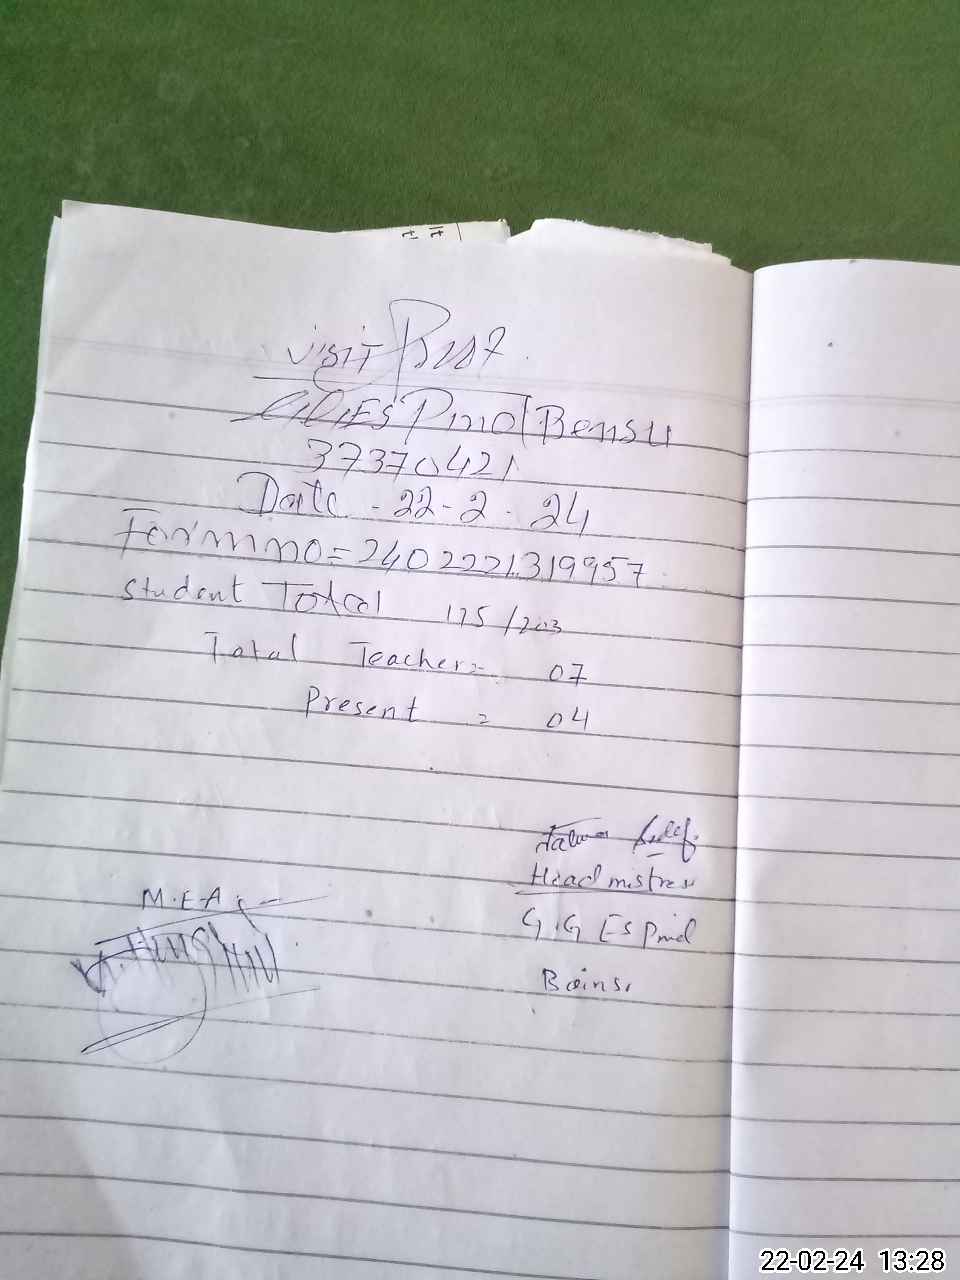 visit
GGES Pmol Bensu
37370421
Date - 22-2-24
Formno=2402221319957
Student Total 175/203
Total Teacher= 07
Present = 04
Headmistres
G.G ES Pmd
Bainsi
M.E.A
22-02-24 13:28